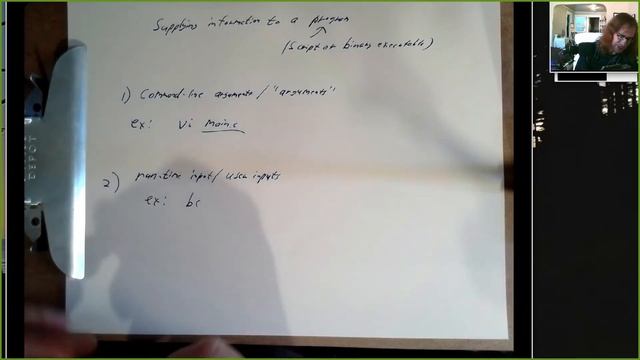 Supplying information to a program
(script or binary executable)
1) Command-line arguments / "arguments"
ex: vi main.c
2) run-time input / user inputs
ex: bc
DEPOT